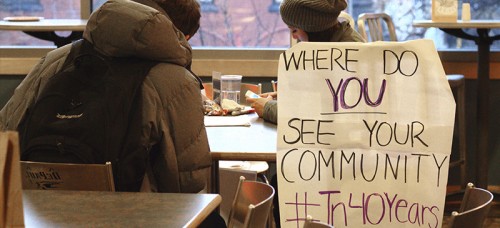 WHERE DO
YOU
SEE YOUR
COMMUNITY
#In40Years